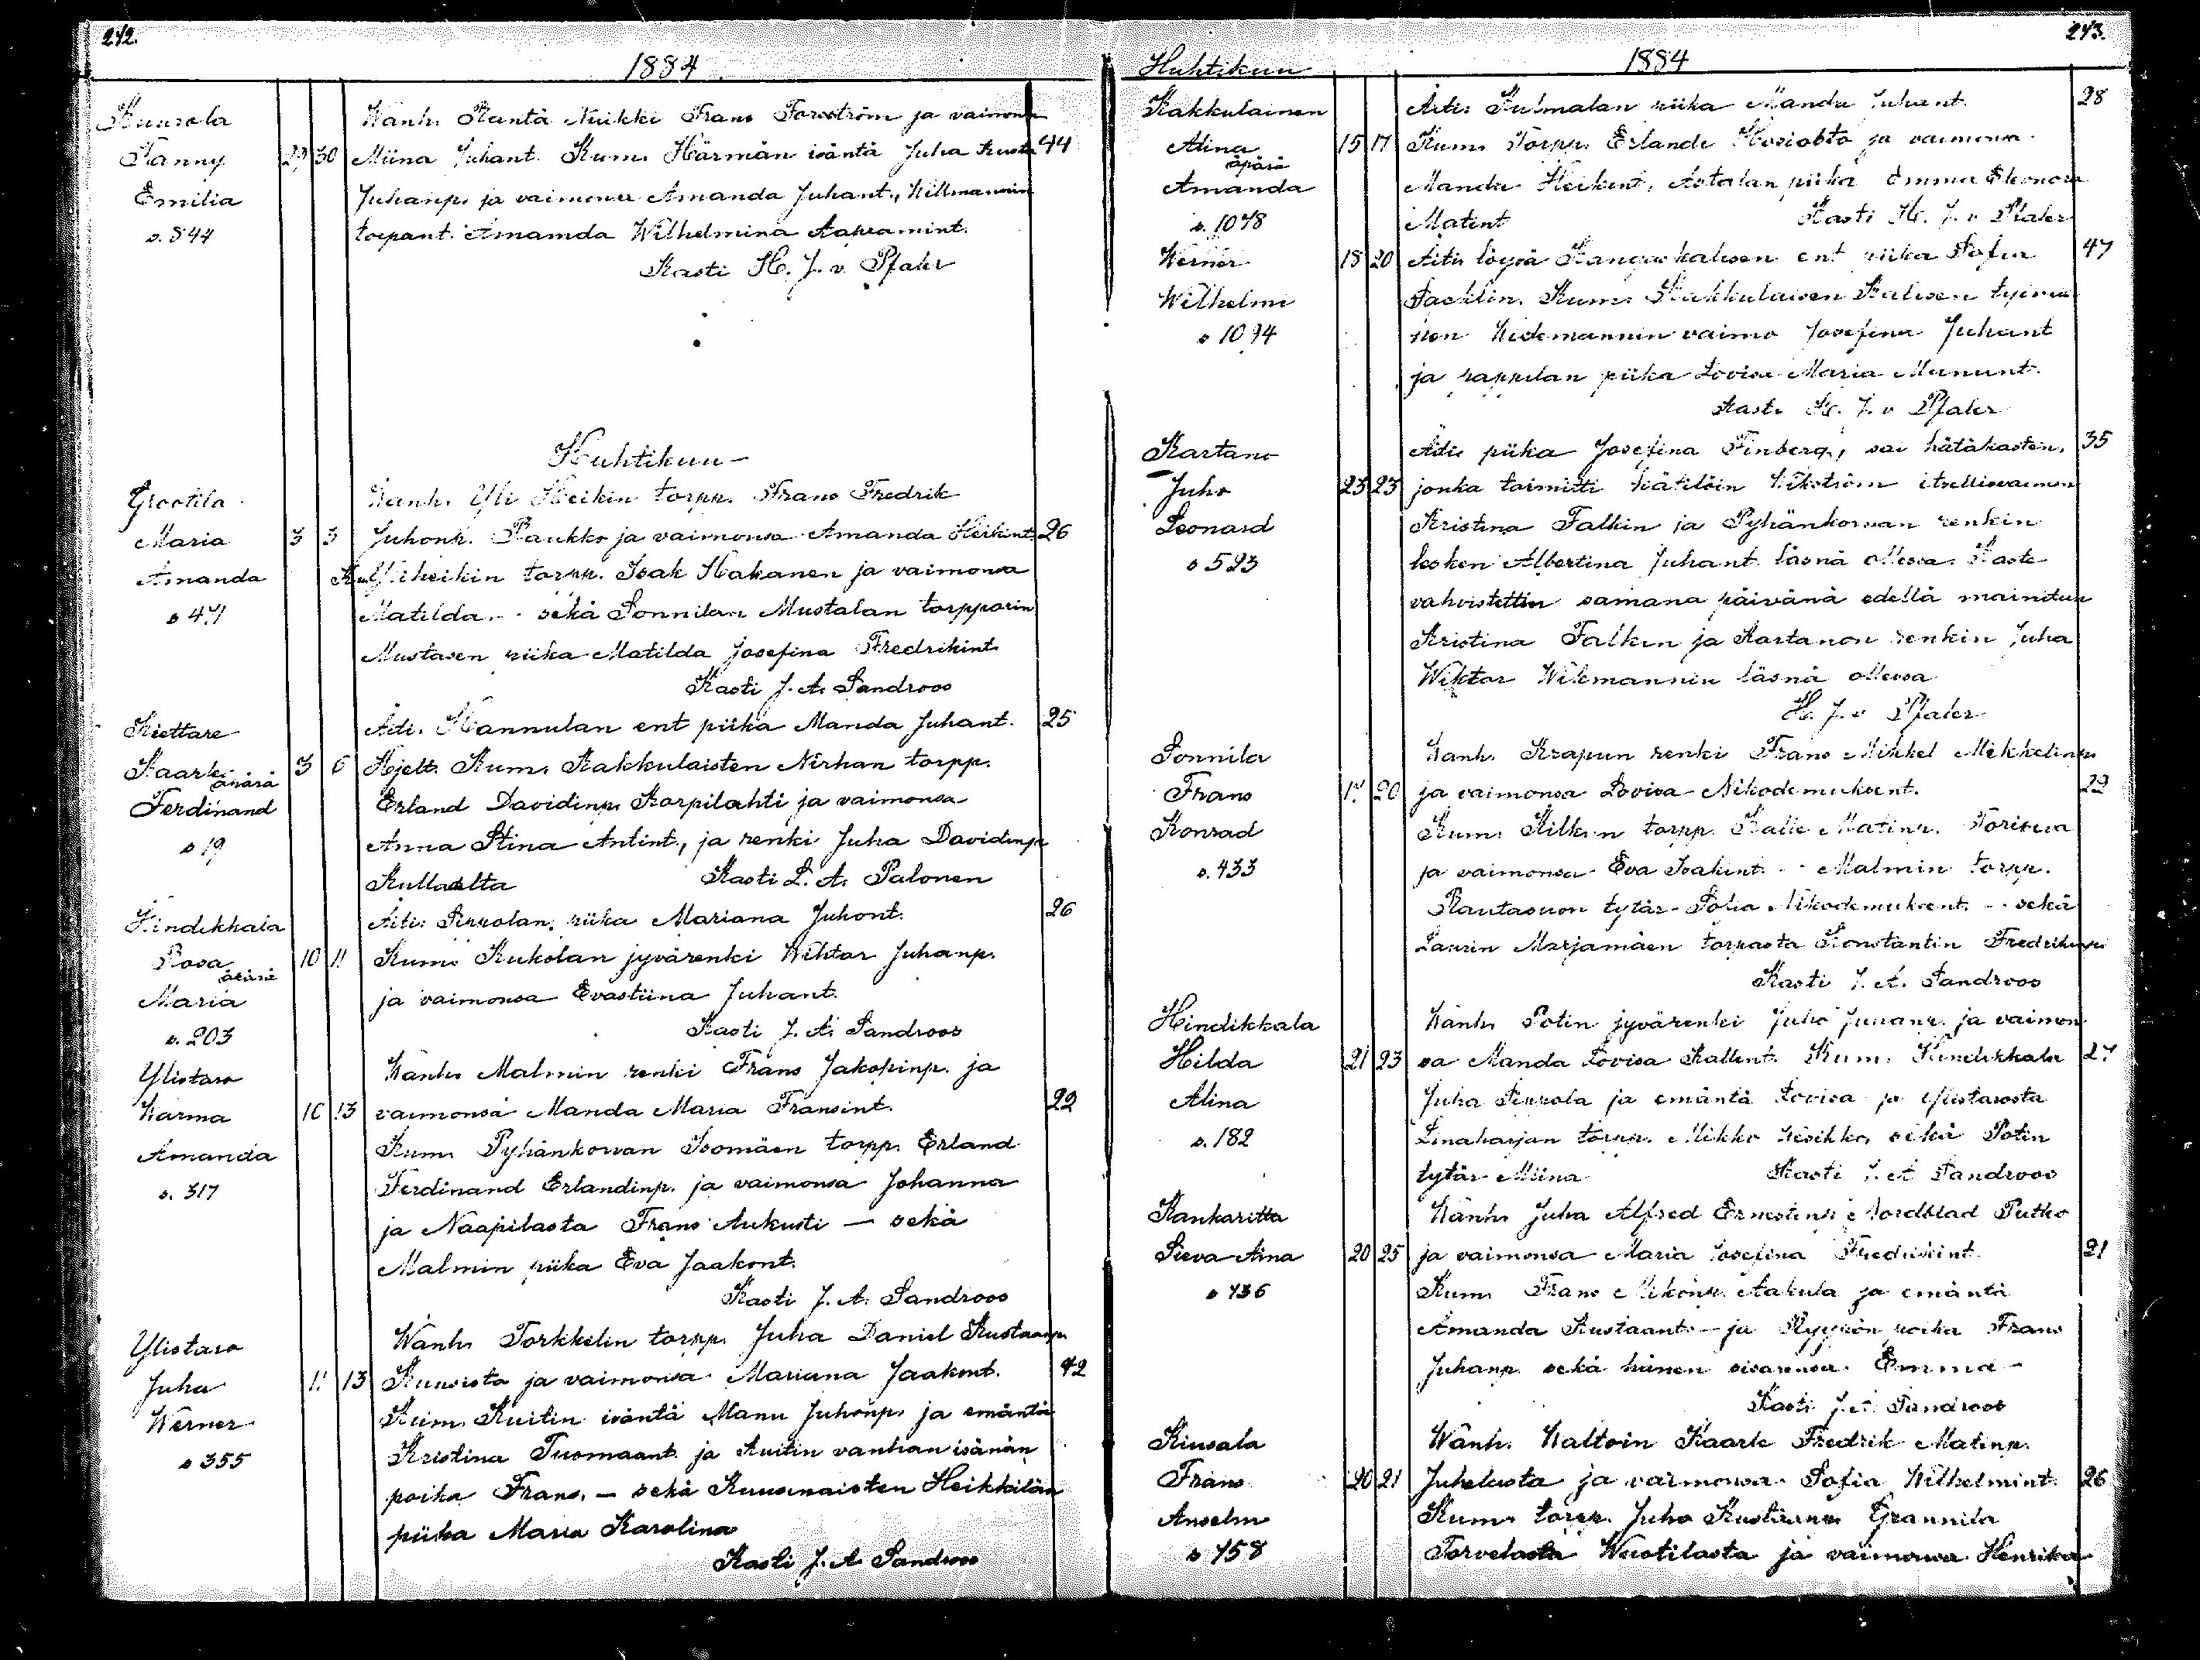 242.
1884
Kuusola
Wanh. Rantä Nuikki Frans Forsström ja vaimonsa
Fanny 29 30 Miina Juhant. Kum. Härmän isäntä Juha Kusta 44
Emilia Juhanp. ja vaimonsa Amanda Juhant.,
s. 844 torpant. Amanda Wilhelmina Aapramint.
Kasti H. J. v. Pfaler
Huhtikuu
Grootila Wanh. Yli Heikin torpp. Frans Fredrik
Maria 3 3 Juhonp. Paukko ja vaimonsa Amanda Heikint. 26
Amanda Kum. Yliheikin torpp. Isak Hakanen ja vaimonsa
s 471 Matilda. - sekä Sonnilan Mustalan torpparin
Mustasen piika Matilda Josefina Fredrikint.
Kasti J. A. Sandroos
Kiettare Äiti. Hannulan ent piika Manda Juhant. 25
Kaarle äpärä 3 6 Hjelt. Kum. Kakkulaisten Nirhan torpp.
Ferdinand Erland Davidinp. Korpilahti ja vaimonsa
s 19 Anna Stina Antint., ja renki Juha Davidinp
Kullaalta Kasti L. A. Palonen
Hindikkala Äiti. Sirkolan piika Mariana Juhont. 26
Rosa äpärä 10 11 Kum. Kukolan jyvärenki Wiktor Juhanp.
Maria ja vaimonsa Evastiina Juhant.
s. 203 Kasti J. A. Sandroos
Ylistaro Wanh. Malmin renki Frans Jakopinp. ja
Warma 10 13 vaimonsa Manda Maria Fransint. 22
Amanda Kum. Pyhänkorvan Isomäen torpp. Erland
s. 317 Ferdinand Erlandinp. ja vaimonsa Johanna
ja Naapilasta Frans Aukusti — sekä
Malmin piika Eva Jaakont.
Kasti J. A. Sandroos
Ylistaro Wanh. Torkkelin torpp. Juha Daniel Kustaanp.
Juha 11 13 Kuusisto ja vaimonsa Mariana Jaakont. 42
Werner Kum. Kuitin isäntä Manu Juhonp. ja emäntä
s 355 Kristina Tuomaant. ja Kuitin vanhan isännän
poika Frans, — sekä Kuusinaisten Heikkilän
piika Maria Karolina
Kasti J. A. Sandroos
243.
Huhtikuu 1884
Kakkulainen Äiti. Kulmalan piika Manda Juhant. 28
Alina äpärä 15 17 Kum. Torpp. Erlandi ja vaimonsa
Amanda Manda Heikint., Astalan piika Emma Eleonora
s. 1078 Matint Kasti H. J. v. Pfaler
Werner 18 20 Äiti. löysä Kangaskalusen ent piika Sofia 47
Wilhelmi Kum. Kakkulaisen
s 1094 Widemannin vaimo Josefina Juhant
ja pappilan piika Lovisa Maria Manunt.
Kasti H. J. v Pfaler
Kartano Äiti. piika Josefina Finberg, sai hätäkasteen, 35
Juho 23 23 jonka toimitti kätilöin Wikström itsellisvaimon
Leonard Kristina Falkin ja Pyhänkorvan renkin
s 593 lesken Albertina Juhant. läsnä ollessa. Kaste
vahvistettiin samana päivänä edellä mainitun
Kristina Falkin ja Kartanon renkin Juha
Wiktor Wikmannin läsnä ollessa
H. J. v Pfaler
Sonnila Wanh. Krapun renki Frans Mikkel Mikkelinp.
Frans 17 20 ja vaimonsa Lovisa Nikodemuksent. 29
Konrad Kum. torpp. Kalle Matinp.
s. 433 ja vaimonsa Eva Isakint. - Malmin torpp.
Rautasuon tytär Nikodemuksent. - sekä
Laurin Marjamäen torpasta Konstantin Fredrikinp.
Kasti J. A. Sandroos
Hindikkala Wanh. Potin jyvärenki Juho Juhanp. ja vaimon
Hilda 21 23 sa Manda Lovisa Kallent. Kum. Hindikkala 27
Alina Juha Sirkola ja emäntä Lovisa ja Ylistarosta
s. 182 Linaharjan torpp. Mikko sekä Potin
tytär Miina Kasti J. A Sandroos
Kankaritta Wanh. Juha Alfred Ernestinp. Nordblad Putko
Sieva Aina 20 25 ja vaimonsa Maria Josefina Fredrikint. 21
s 736 Kum. Frans Mikonp. Aakula ja emäntä
Amanda Kustaant. - ja poika Frans
Juhanp. sekä hänen sisarensa Emma -
Kasti J. A. Sandroos
Kiusala Wanh. Waltoin Kaarle Fredrik Matinp.
Frans 20 21 ja vaimonsa Sofia Wilhelmint. 26
Anselm Kum. torpp. Juho Grannila
s 758 Torvelasta ja vaimonsa Henrika